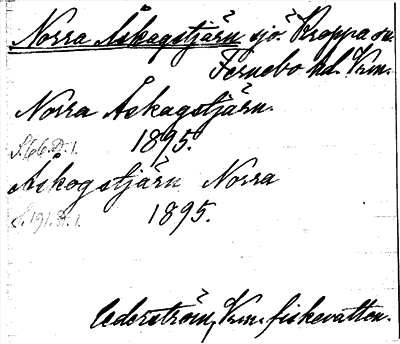 Norra Åskagstjärn sjö Kroppa sn
Fernebo hd. Vrm.
Norra Åskagstjärn.
1895.
S. 66. D. 1.
Åskogstjärn Norra
1895.
S. 191. D. 1.
Cederström, Vrm. fiskevatten.